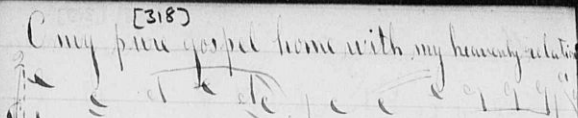 [318]
O my pure gospel home with my heavenly relati